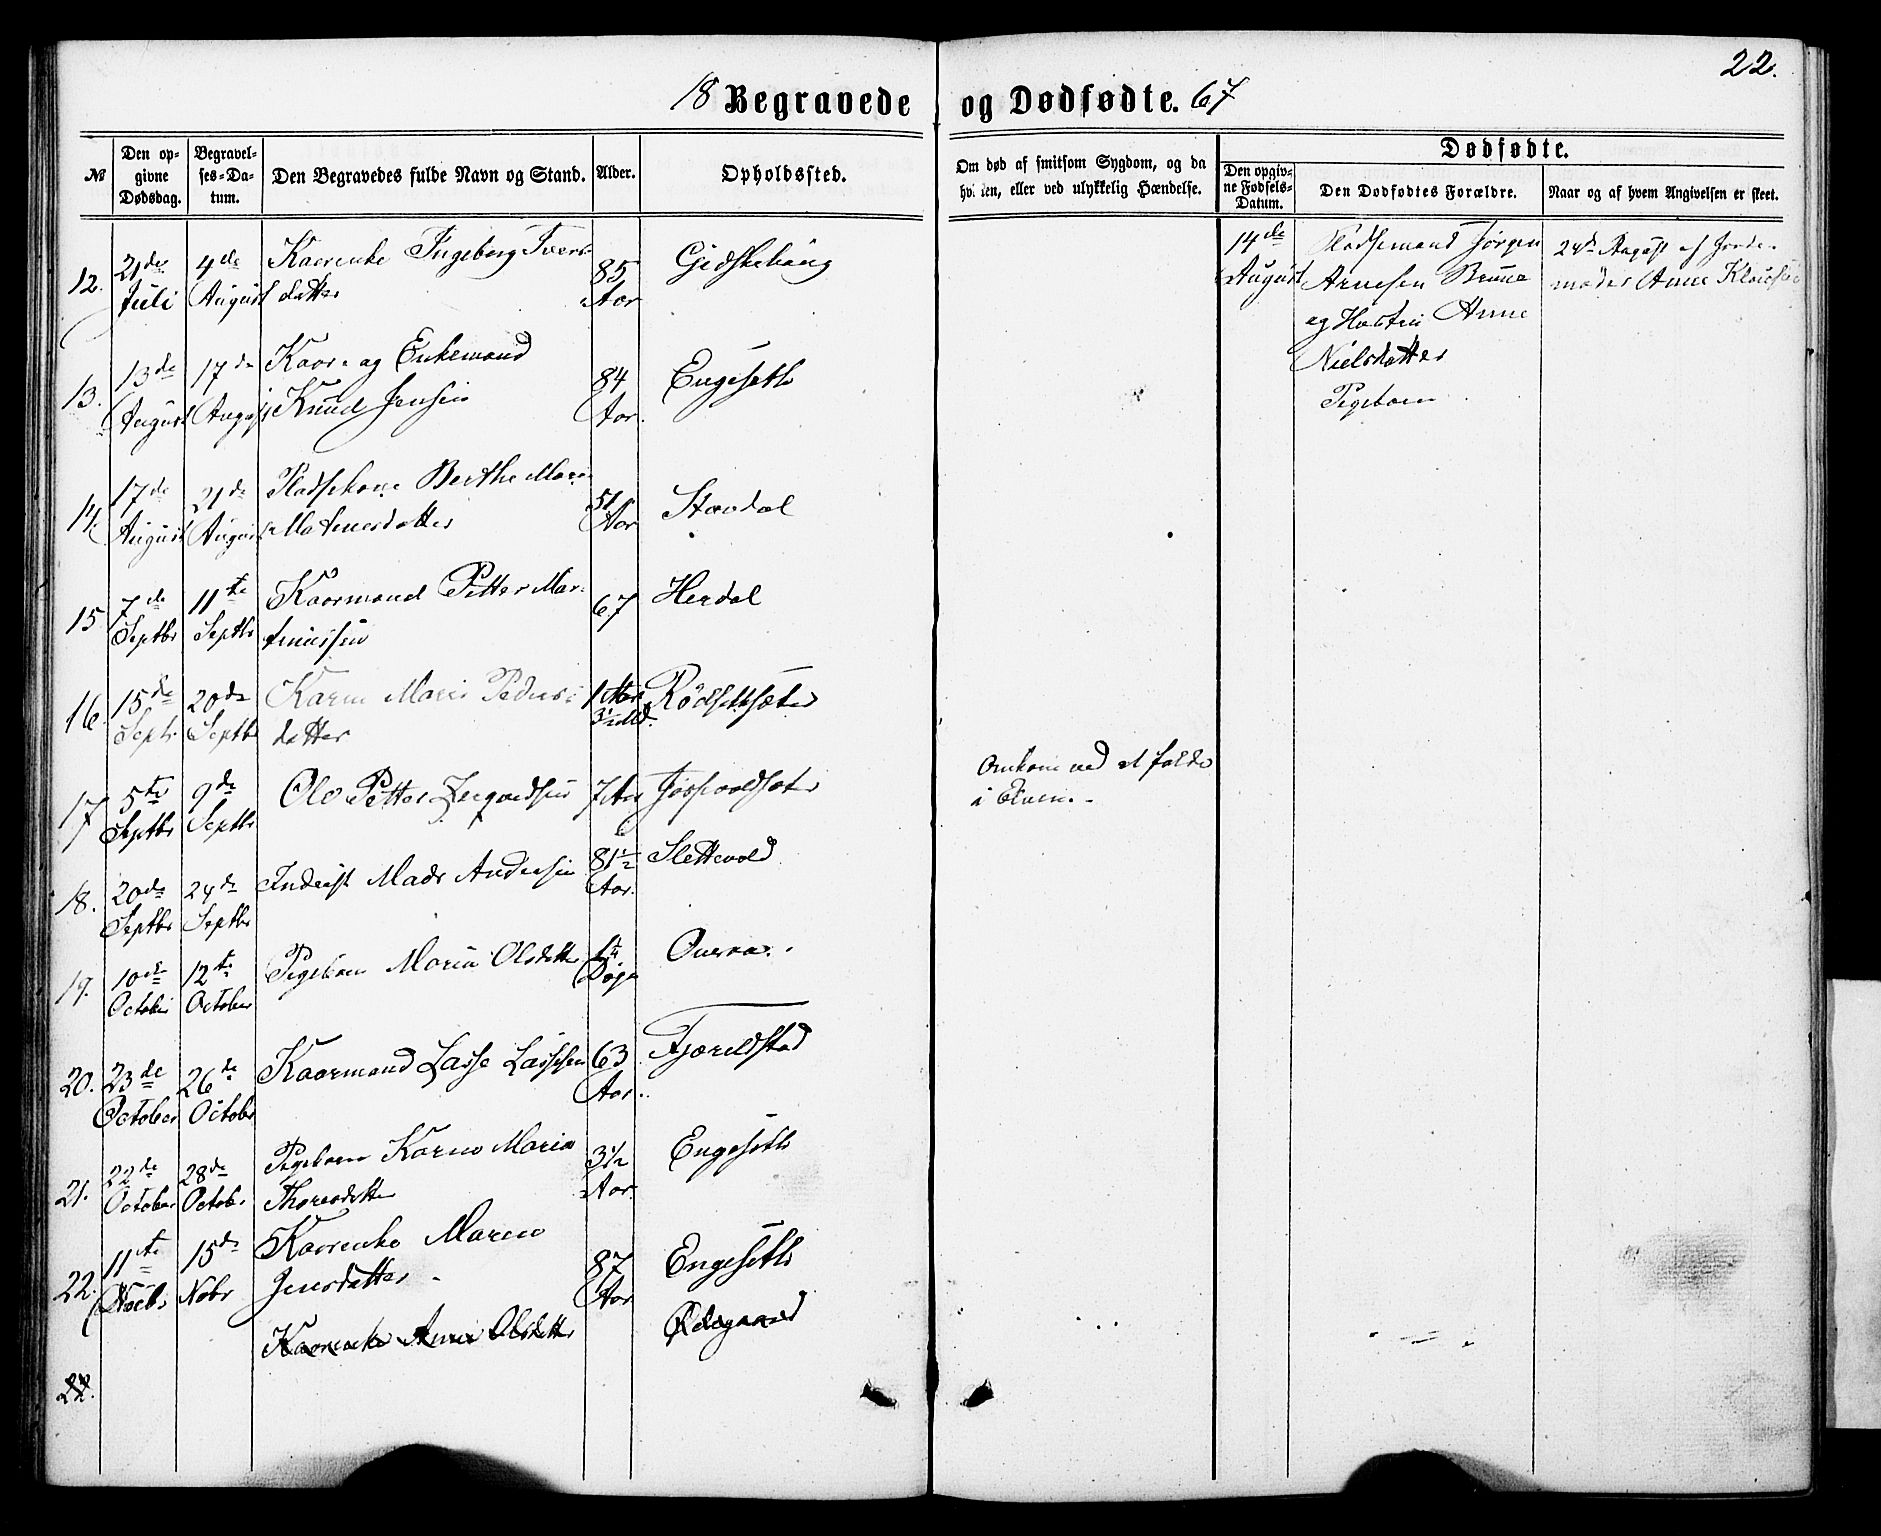 22.
18 Begravede og Dødfødte. 67
№
Den opgivne Dødsdag.
Begravelses-Datum.
Den Begravedes fulde Navn og Stand.
Alder.
Opholdssted.
Om død af smitsom Sygdom, og da hvilken, eller ved ulykkelig Hændelse.
Dødfødte.
Den opgivne Fødsels-Datum.
Den Dødfødtes Forældre.
Naar og af hvem Angivelsen er skeet.
12. 21de 4de Kaarenke Ingeborg Iver- 85 Gjedskehaug
Juli August datter Aar
13. 13de 17de Kaar- og Enkemand 84 Engeseth
August August Knud Jensen Aar.
14. 17de 21de Pladsekone Berthe Mari 51 Stavdal
August August Martinesdatter Aar
15. 7de 11te Kaarmand Petter Mar- 67 Herdal
Septbr Septbr tinussen
16. 15de 20de Karen Marie Peders- 1 Aar Rødsetsæter
Septr Septbr datter 3½ Md.
17 5te 9de Ole Petter 7 Aar
Septbr Septbr
Omkom ved at falde
i Elven.
18. 20de 24de Inderst Mads Andersen 81½ Slettevold
Septbr Septbr Aar.
19. 10de 12te Pigebarn Maria Olsdatter
October October Døgn
20. 23de 26de Kaarmand Lasse Lassesen 63 Fjæreldstad
October October Aar.
21. 22de 28de Pigebarn Karen Maria 3½ Engeseth
October Octobr Aar.
22. 11te 15de Kaarenke Maren 87 Engeseth
Novbr Nobr Jensdatter Aar
Kaarenke Anne Olsdatter Ødegaard
22.
14de Pladsemand Jørgen 24de August af Jorde-
August Arnesen Brune moder Anne
og Hustru Anne
Nielsdatter
Pigebarn